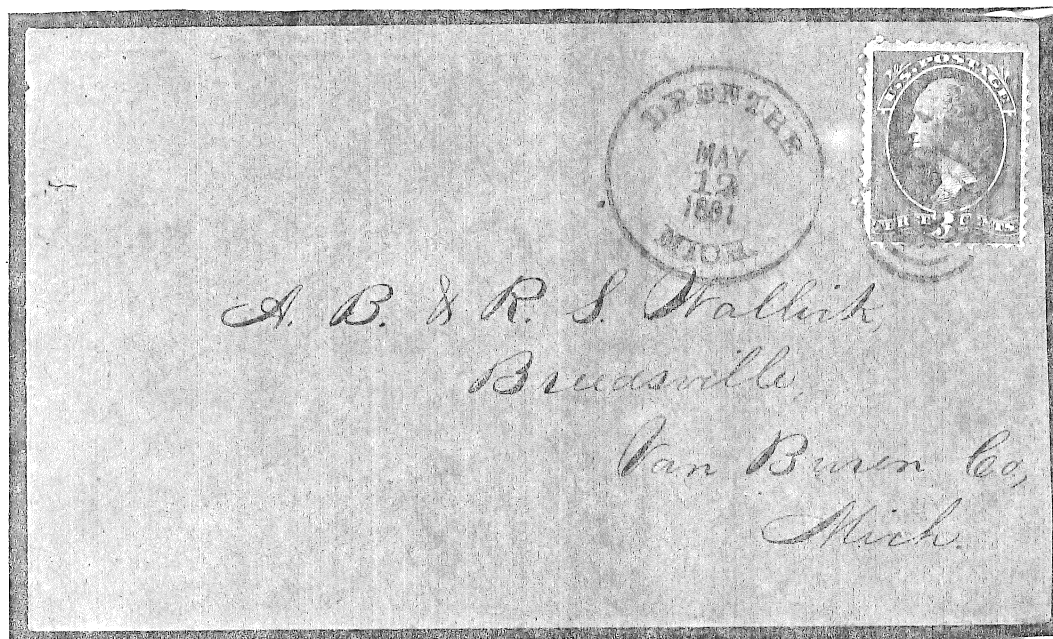 DRENTHE
MAY
12
1881
MICH.
U.S. POSTAGE
THREE 3 CENTS
A. B. & R. S. Wallick,
Breedsville,
Van Buren Co,
Mich.